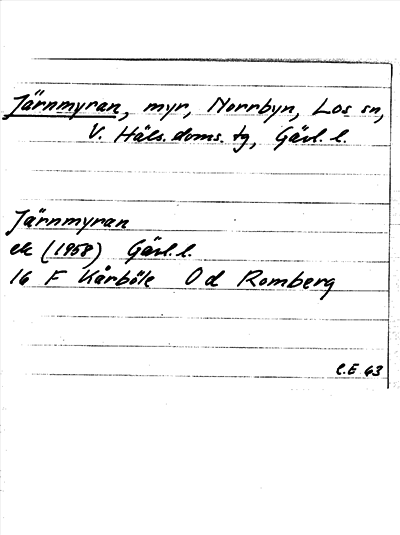 Järnmyran, myr, Norrbyn, Los sn,
V. Häls. doms. tg, Gävl. l.
Järnmyran
ek (1958) Gävl. l.
16 F Kårböle Od Romberg
C.E 63